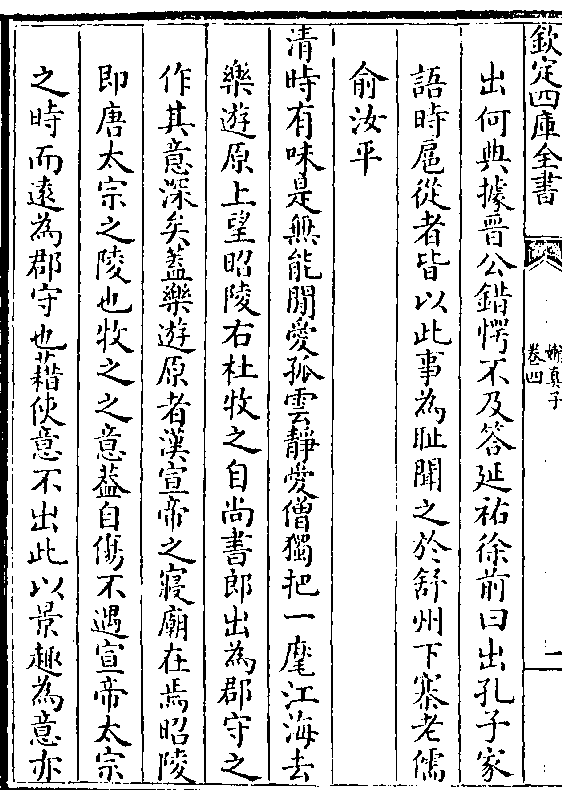 欽定四庫全書
嬾真子
卷四
二
出何典據晉公錯愕不及答延祐徐前曰出孔子家
語時扈從者皆以此事為耻聞之於舒州下寨老儒
俞汝平
清時有味是無能閒愛孤雲靜愛僧獨把一麾江海去
樂遊原上望昭陵右杜牧之自尚書郎出為郡守之
作其意深矣蓋樂遊原者漢宣帝之寢廟在焉昭陵
即唐太宗之陵也牧之之意葢自傷不遇宣帝太宗
之時而遠為郡守也藉使意不出此以景趣為意亦